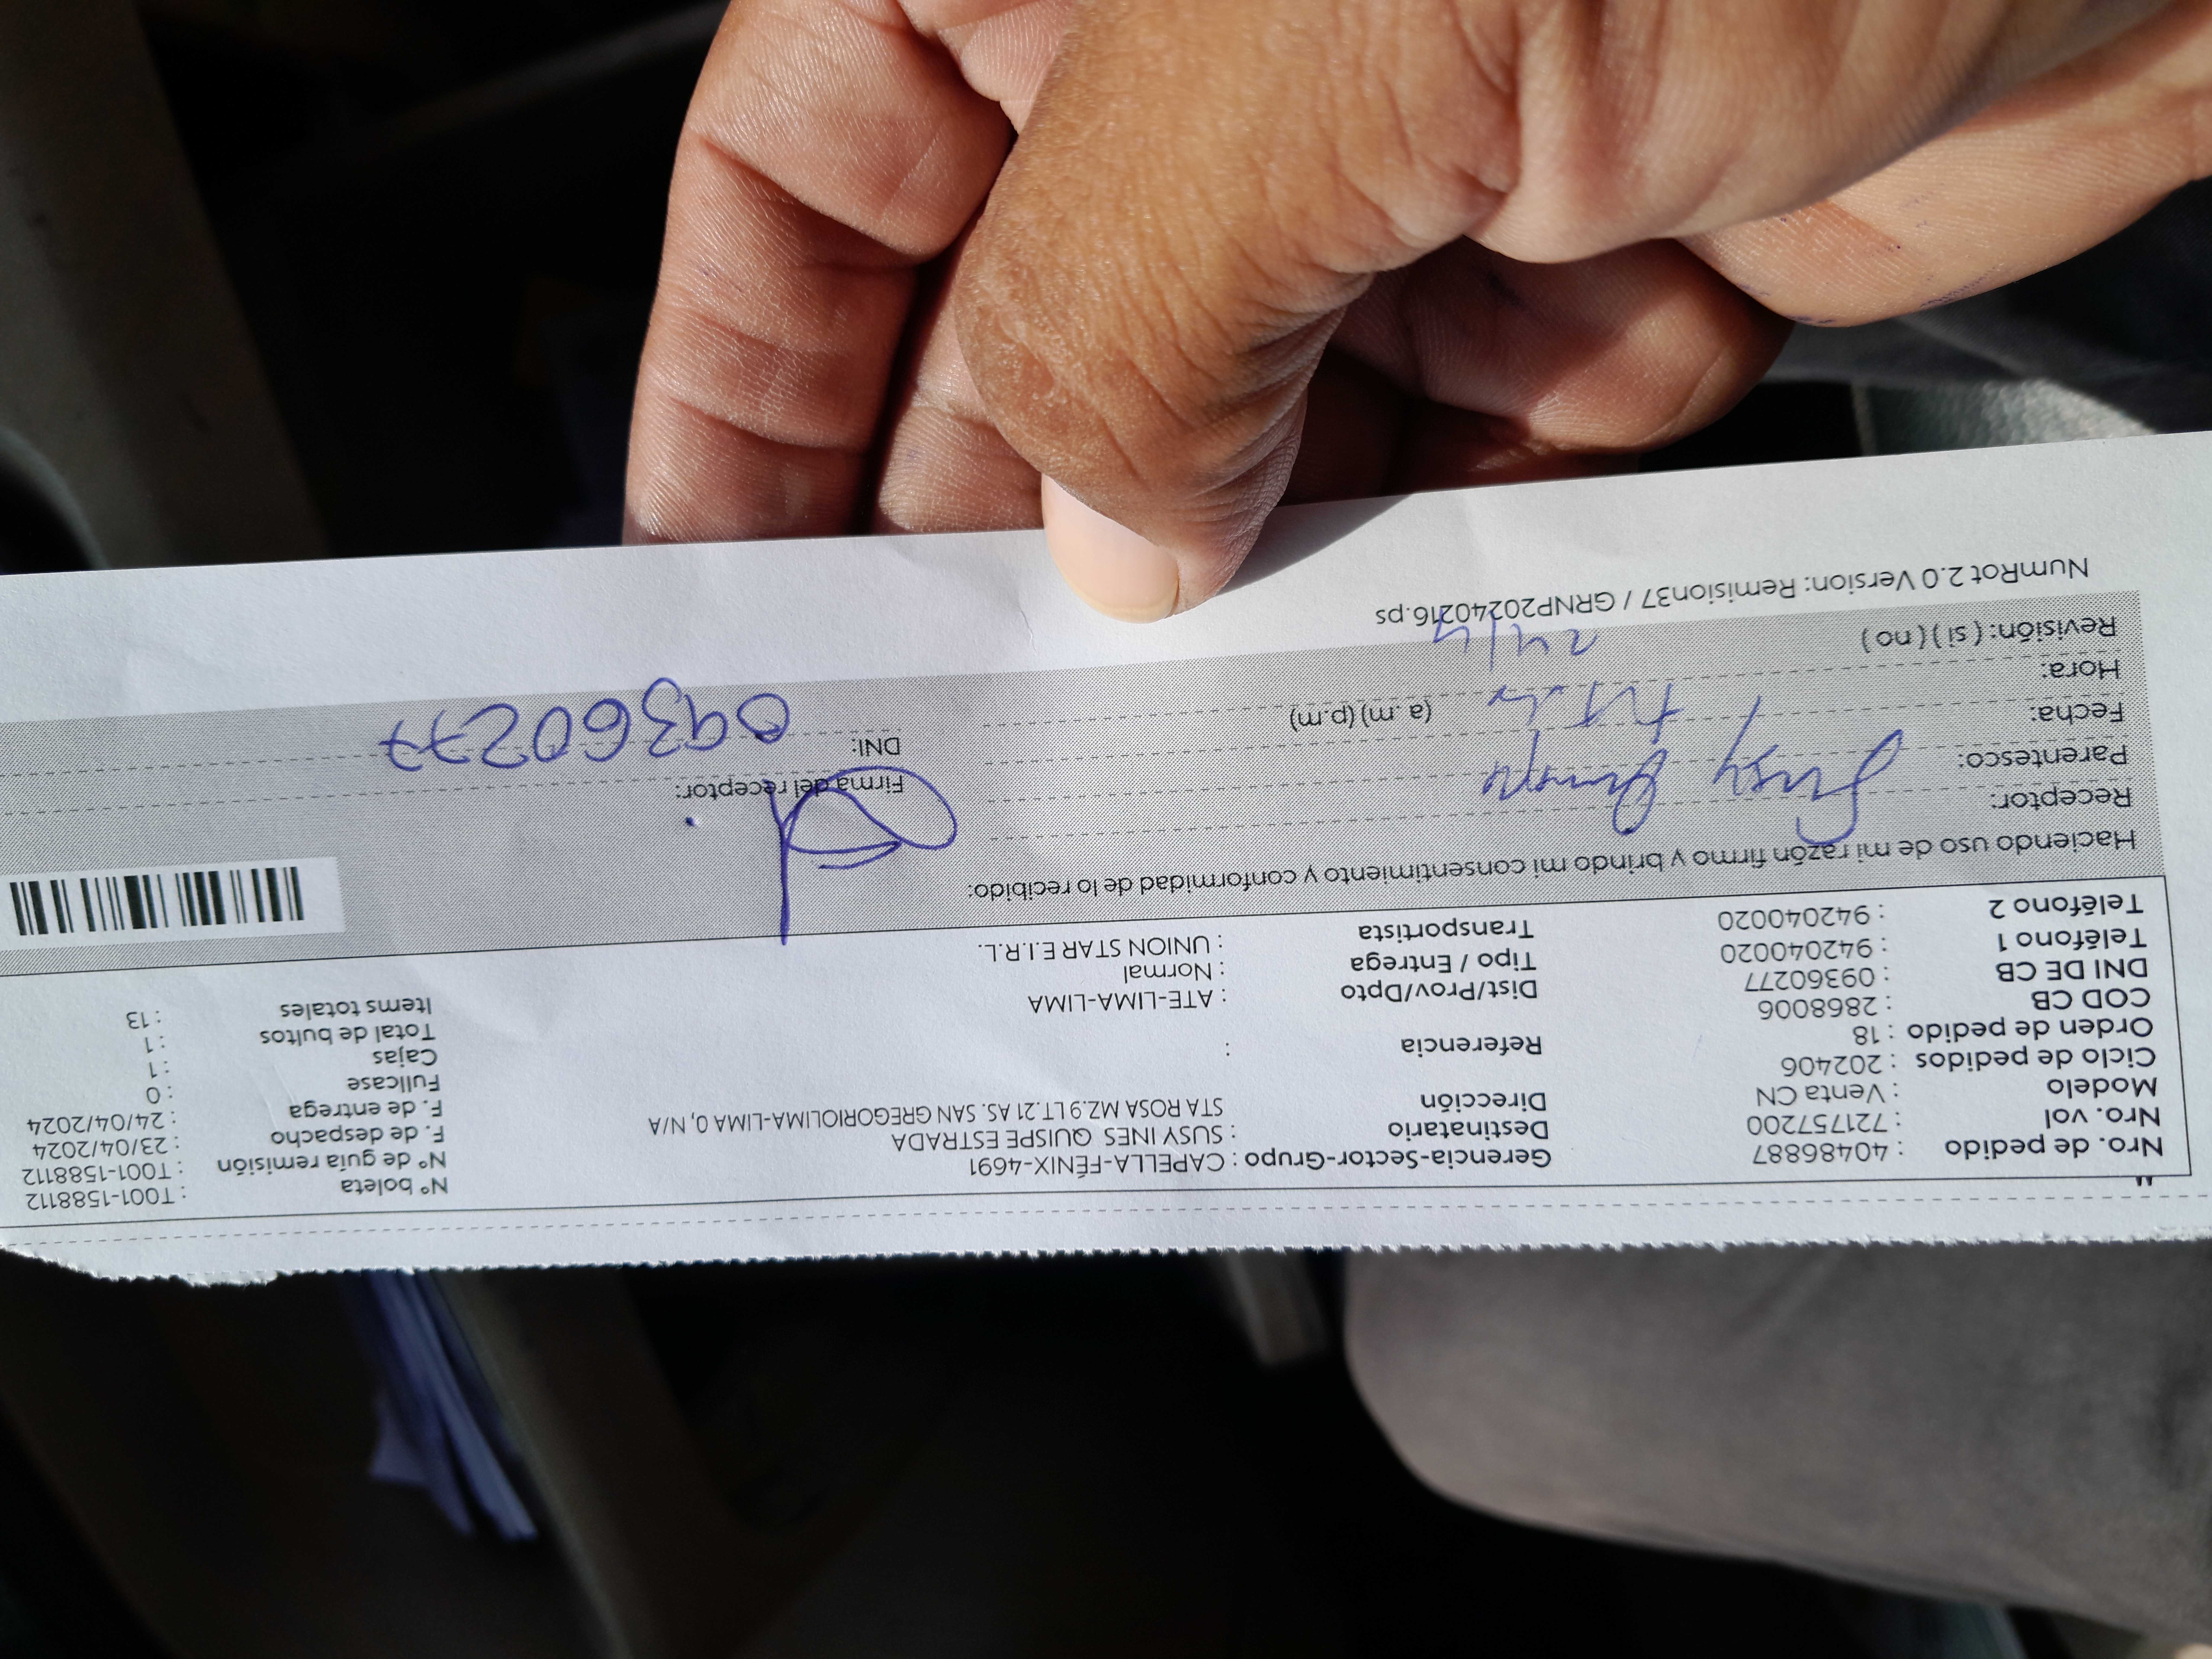 Nro. de pedido : 40486887 Gerencia-Sector-Grupo : CAPELLA-FÉNIX-4691 N° boleta : T001-1588112
Nro. vol : 721757200 Destinatario : SUSY INES QUISPE ESTRADA N° de guía remisión : T001-1588112
Modelo : Venta CN Dirección STA ROSA MZ.9 LT.21 AS. SAN GREGORIOLIMA-LIMA 0, N/A F. de despacho : 23/04/2024
Ciclo de pedidos : 202406 F. de entrega : 24/04/2024
Orden de pedido : 18 Referencia : Fullcase : 0
COD CB : 2868006 Cajas : 1
DNI DE CB : 09360277 Dist/Prov/Dpto : ATE-LIMA-LIMA Total de bultos : 1
Teléfono 1 : 942040020 Tipo / Entrega : Normal Items totales : 13
Teléfono 2 : 942040020 Transportista : UNION STAR E.I.R.L.
Haciendo uso de mi razón firmo y brindo mi consentimiento y conformidad de lo recibido:
Receptor: Susy
Parentesco: Firma del receptor:
Fecha: DNI: 09360277
Hora: (a.m) (p.m)
Revisión: ( si ) ( no ) 24/4
NumRot 2.0 Version: Remision37 / GRNP20240216.ps